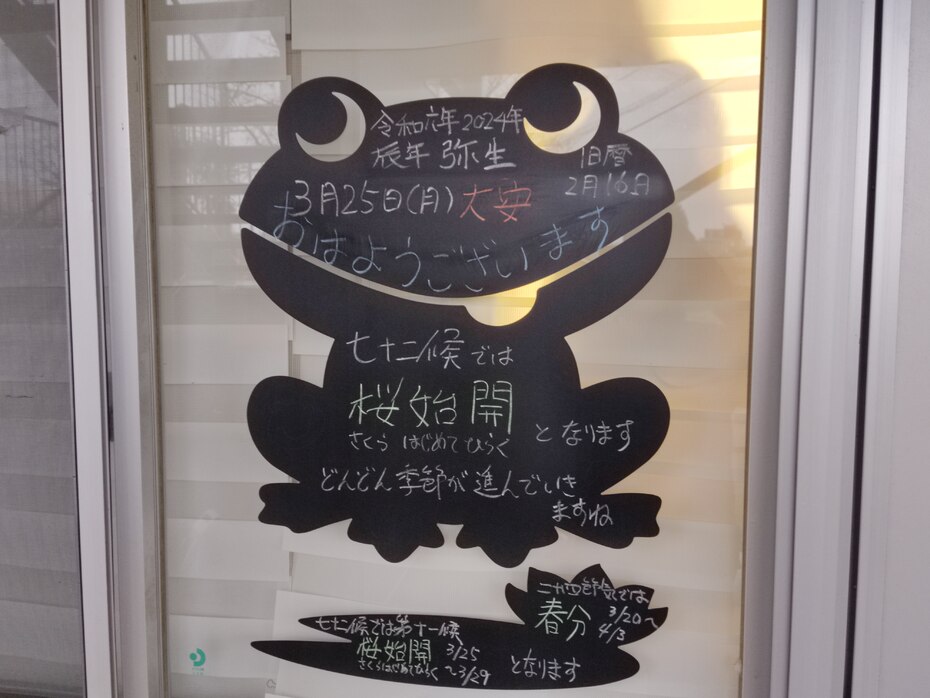 令和六年 2024年
辰年 弥生
旧暦
2月16日
3月25日(月) 大安
おはようございます
七十二候では
桜始開
さくら はじめて ひらく
となります
どんどん季節が進んでいき
ますね
二十四節気では
春分 3/20〜
4/3
七十二候では第十一候
桜始開 3/25
さくらはじめてひらく 〜3/29
となります